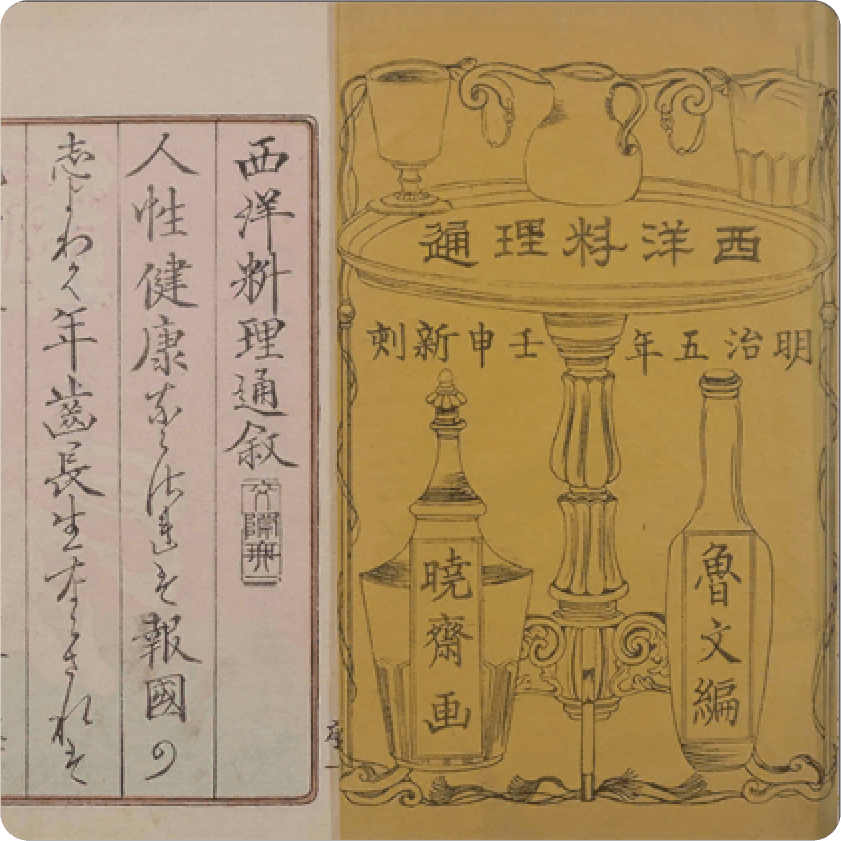 西洋料理通
明治五年 壬申新刻
魯文編
暁齋画
序一
西洋料理通敘
人性健康ならされは報國の
志よわく年齒長生ならされは